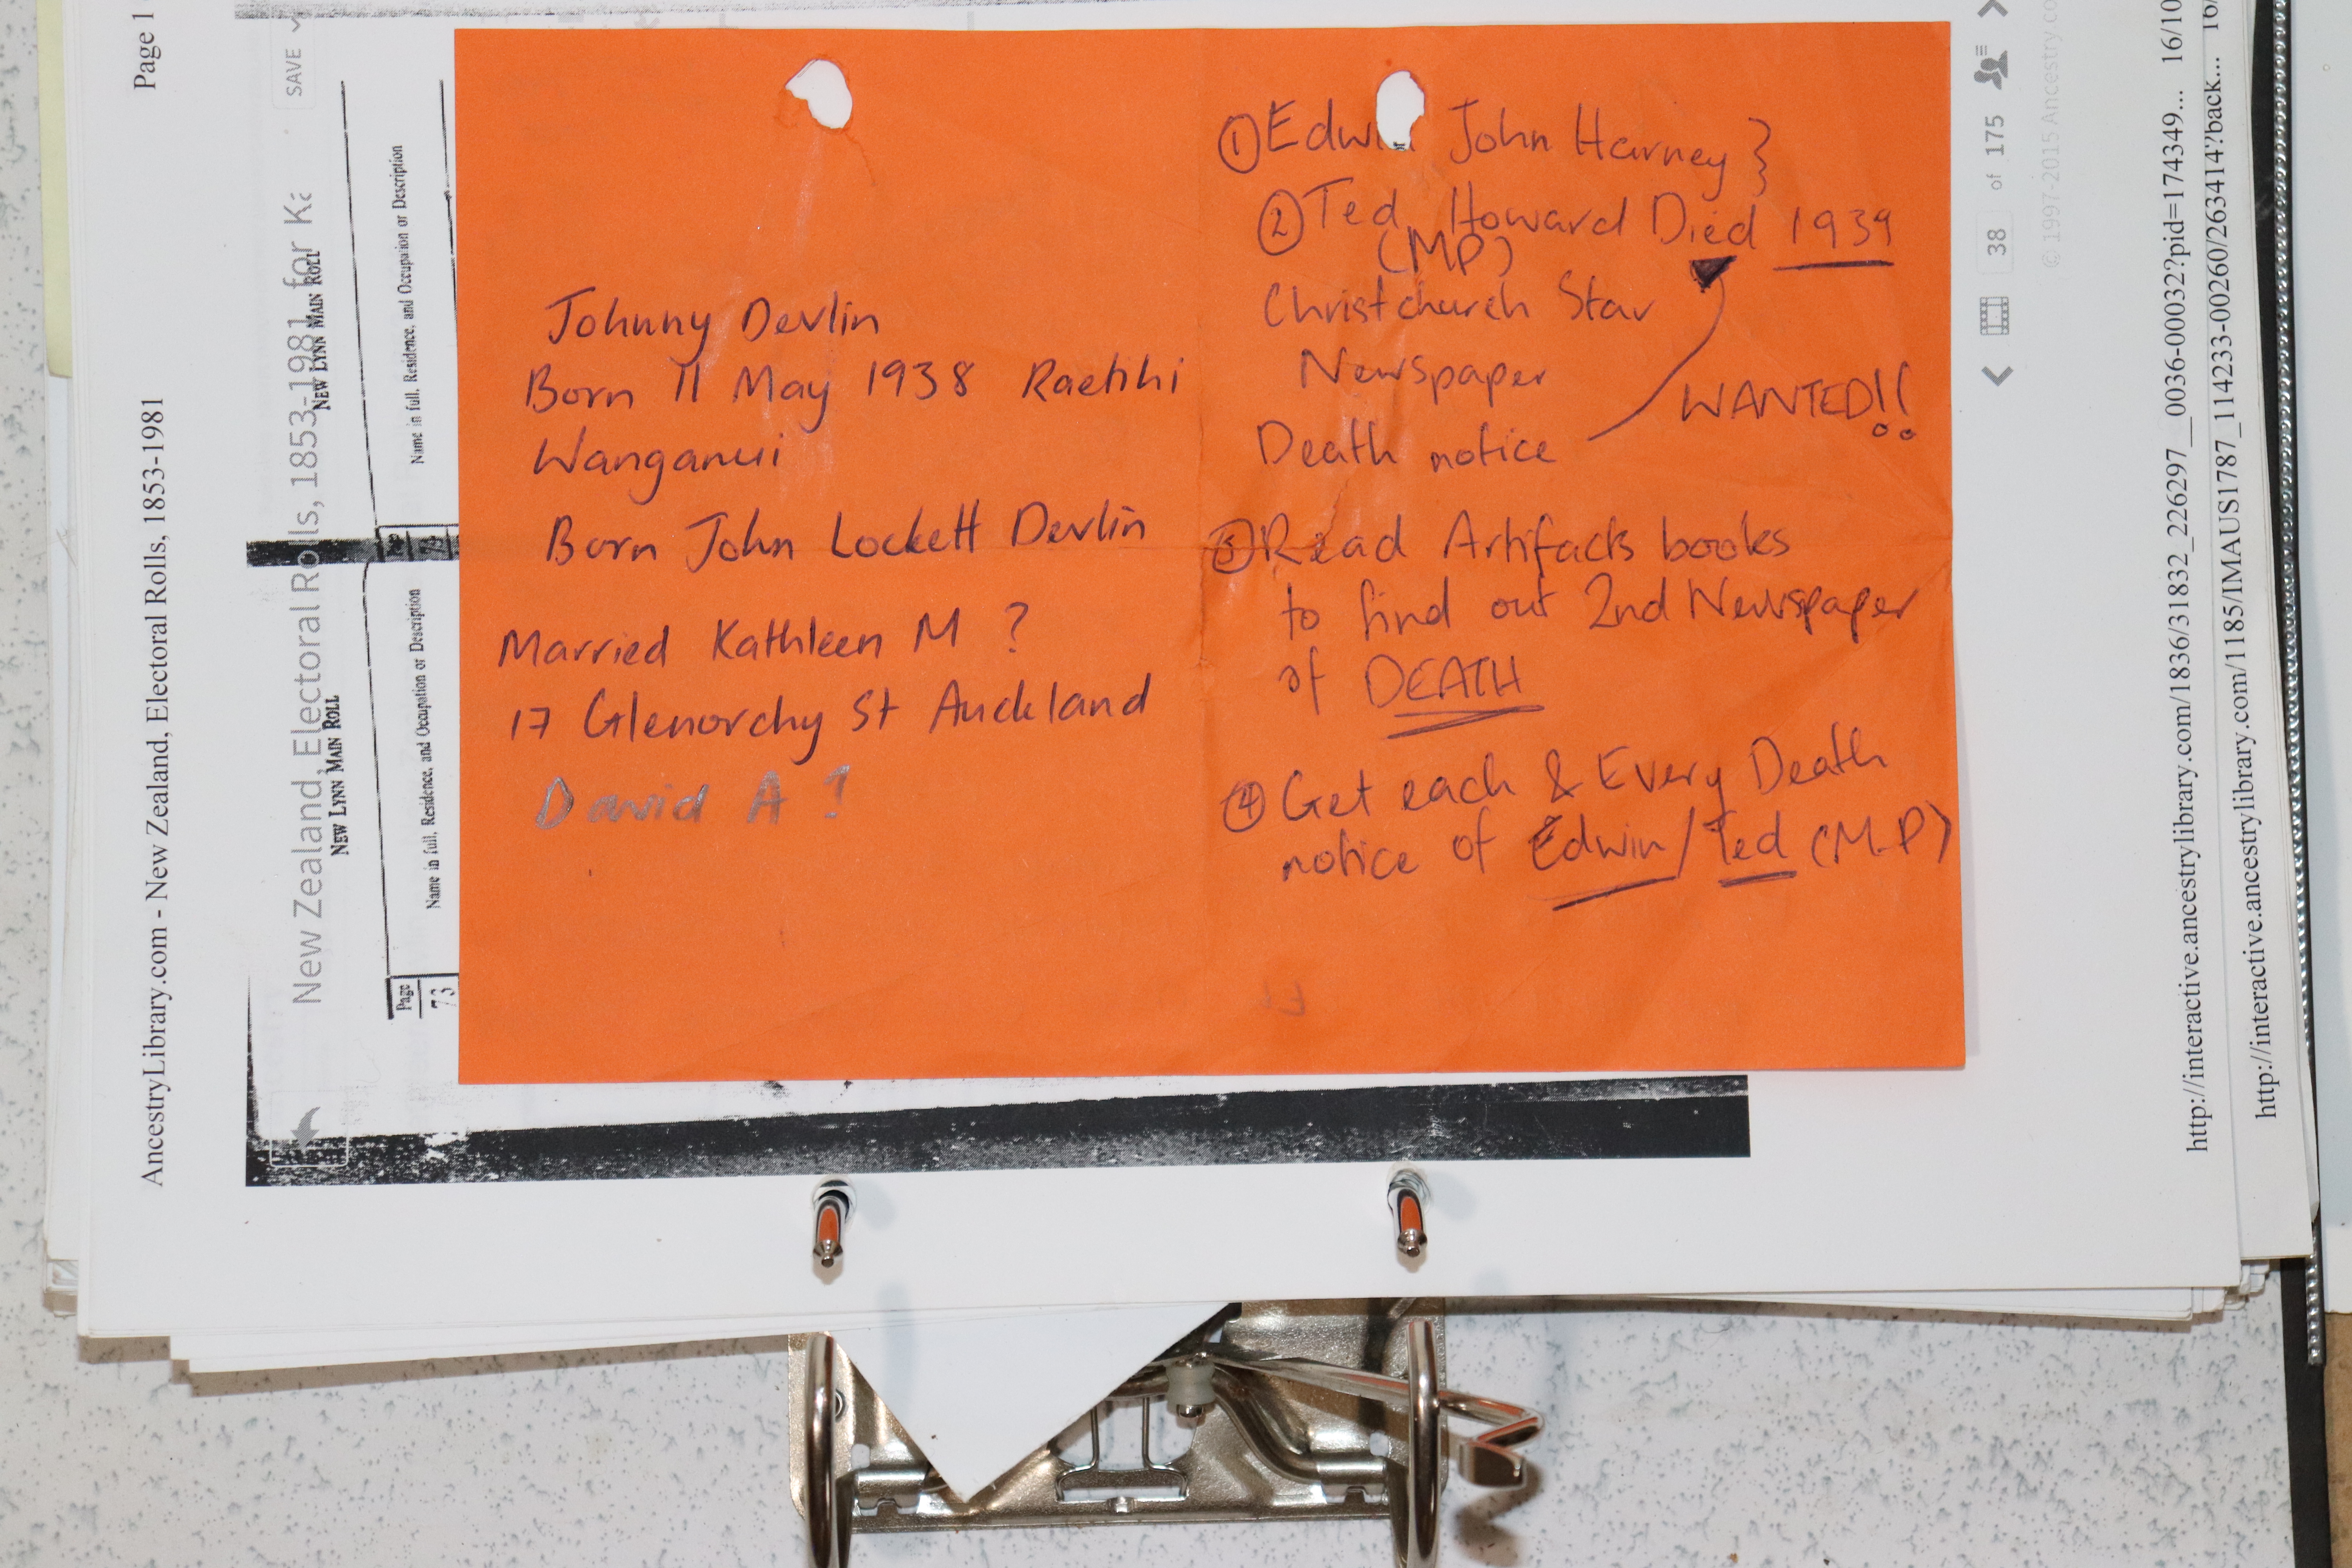 Johnny Devlin
Born 11 May 1938 Raetihi
Wanganui
Born John Lockett Devlin
Married Kathleen M ?
17 Glenorchy St Auckland
David A ?
① Edwin John Harney }
② Ted Howard Died 1939
(MP)
Christchurch Star
Newspaper
Death notice
WANTED!!
③ Read Artifacts books
to find out 2nd Newspaper
of DEATH
④ Get each & Every Death
notice of Edwin / Ted (M.P)
Page 1
AncestryLibrary.com - New Zealand, Electoral Rolls, 1853-1981
SAVE
New Zealand, Electoral Rolls, 1853-1981 for Ka
NEW LYNN MAIN ROLL
NEW LYNN MAIN ROLL
Name in full, Residence, and Occupation or Description
Name in full, Residence, and Occupation or Description
Page
73
38 of 175
© 1997-2015 Ancestry.co
http://interactive.ancestrylibrary.com/1836/31832_226297__0036-00032?pid=174349... 16/10
http://interactive.ancestrylibrary.com/1185/IMAUS1787_114233-00260/263414?back... 16/